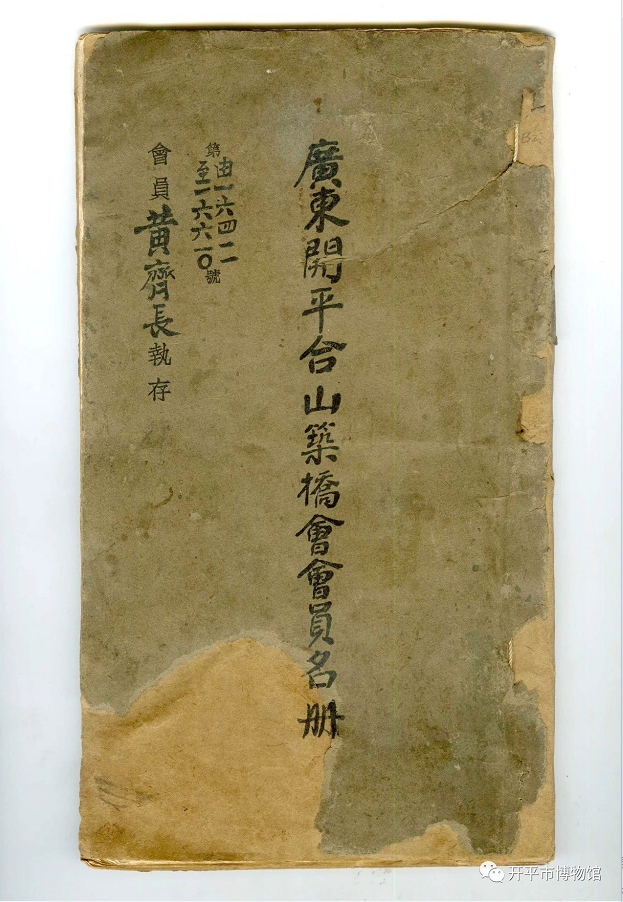 廣東開平合山築橋會會員名册
第由一六四二至一六六〇號
會員黄齊長執存
开平市博物馆